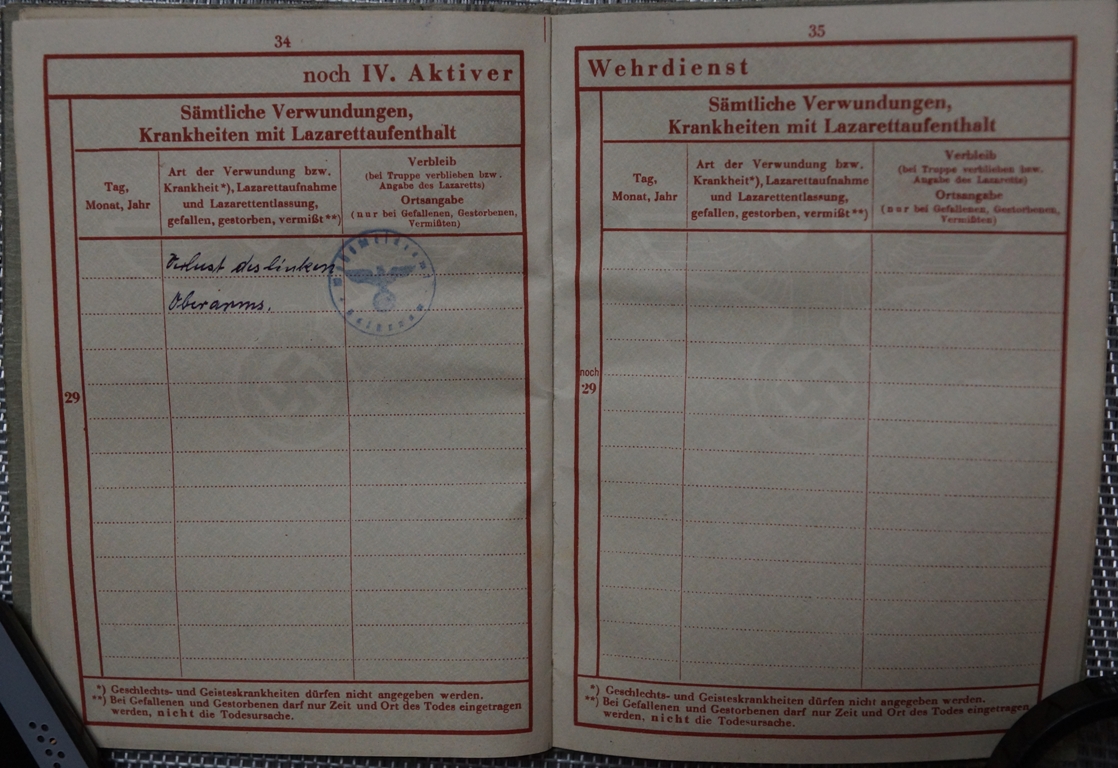 34
noch IV. Aktiver
Sämtliche Verwundungen,
Krankheiten mit Lazarettaufenthalt
Tag,
Monat, Jahr
Art der Verwundung bzw.
Krankheit*), Lazarettaufnahme
und Lazarettentlassung,
gefallen, gestorben, vermißt**)
Verbleib
(bei Truppe verblieben bzw.
Angabe des Lazaretts)
Ortsangabe
(nur bei Gefallenen, Gestorbenen,
Vermißten)
Verlust des linken
Oberarms.
29
*) Geschlechts- und Geisteskrankheiten dürfen nicht angegeben werden.
**) Bei Gefallenen und Gestorbenen darf nur Zeit und Ort des Todes eingetragen
werden, nicht die Todesursache.
35
Wehrdienst
Sämtliche Verwundungen,
Krankheiten mit Lazarettaufenthalt
Tag,
Monat, Jahr
Art der Verwundung bzw.
Krankheit*), Lazarettaufnahme
und Lazarettentlassung,
gefallen, gestorben, vermißt**)
Verbleib
(bei Truppe verblieben bzw.
Angabe des Lazaretts)
Ortsangabe
(nur bei Gefallenen, Gestorbenen,
Vermißten)
noch
29
*) Geschlechts- und Geisteskrankheiten dürfen nicht angegeben werden.
**) Bei Gefallenen und Gestorbenen darf nur Zeit und Ort des Todes eingetragen
werden, nicht die Todesursache.